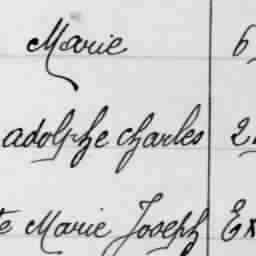 Marie 6
adolphe charles 2
te Marie Joseph Ex